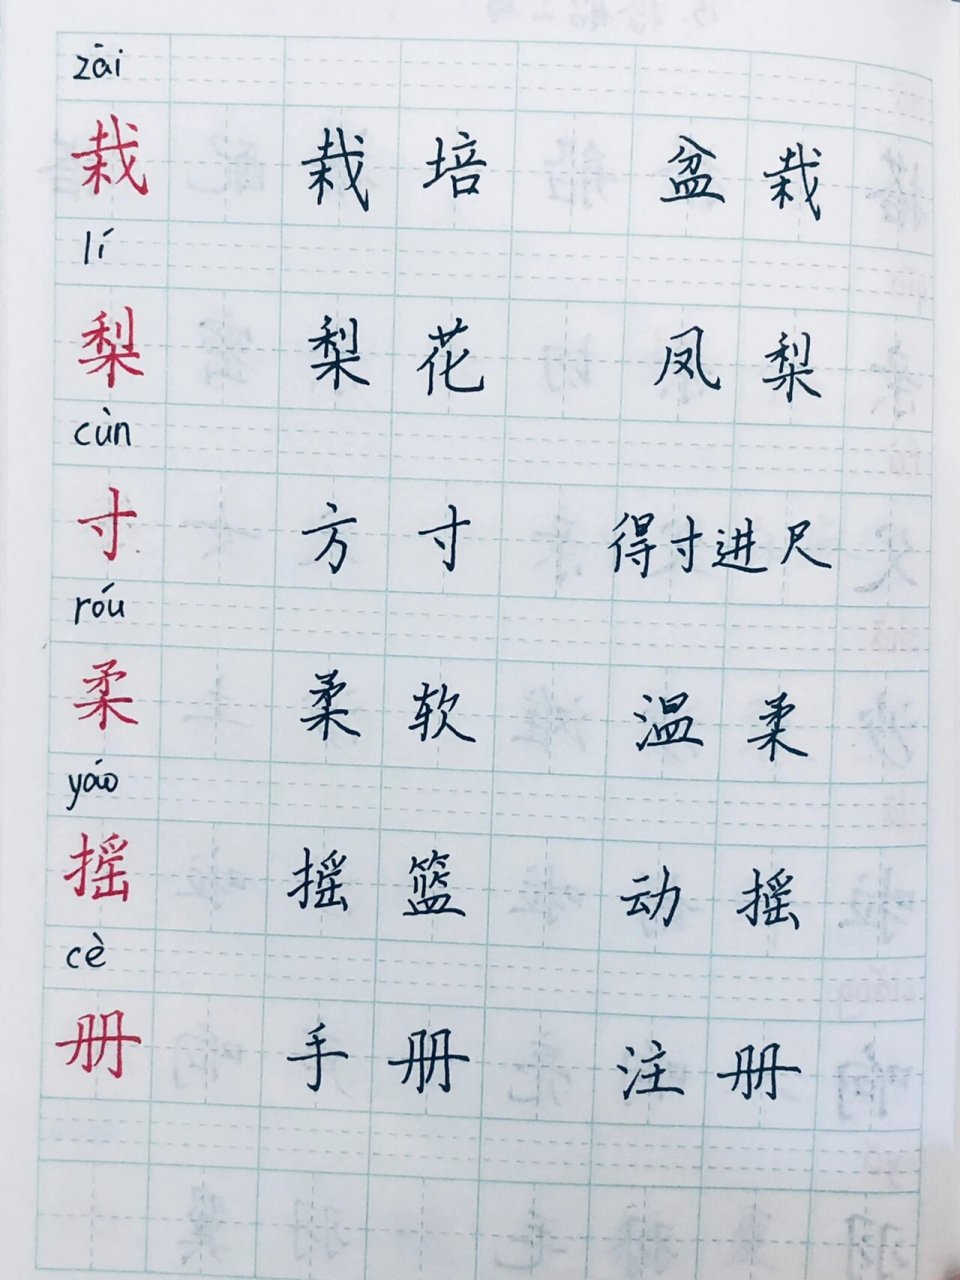 zāi
栽 栽培 盆栽
lí
梨 梨花 凤梨
cùn
寸 方寸 得寸进尺
róu
柔 柔软 温柔
yáo
摇 摇篮 动摇
cè
册 手册 注册